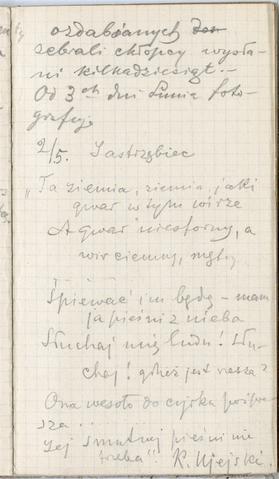 ozdabianych
zebrali chłopcy wysła-
ni kilkadziesiąt.-
Od 3ch dni Lunia foto-
grafuje
2/5. Jastrzębiec
„Ta ziemia, ziemia, jaki
gwar w tym wirze
A gwar niesforny, a
wir ciemny, mętny
Śpiewać im będę - mam
ja pieśni z nieba
Słuchaj mnę ludu! Słu-
chaj! gdzież jest rzesza?
Ona wesoło do cyrku pośpie-
sza..
Jej smutnej pieśni nie
trzeba". K. Ujejski.